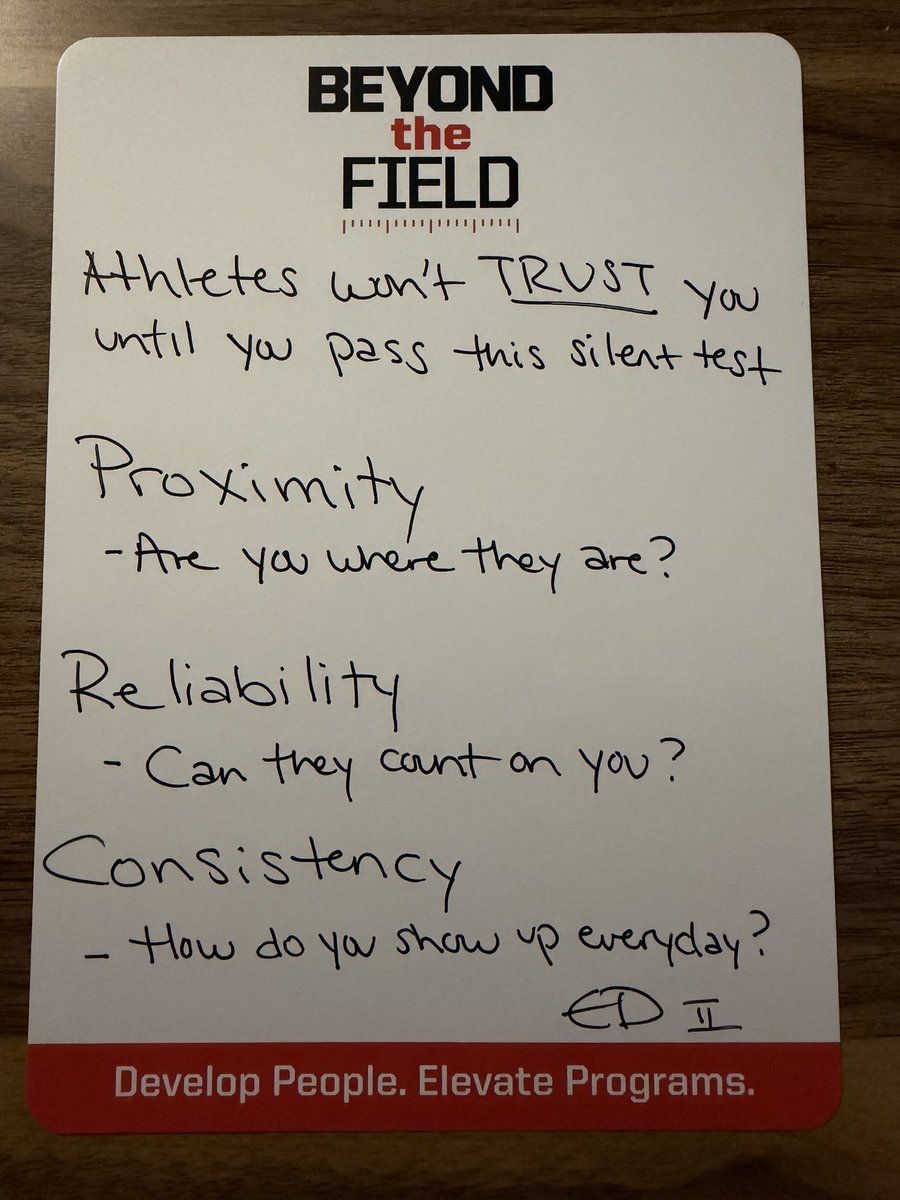 BEYOND
the
FIELD
Athletes won't TRUST you
until you pass this silent test
Proximity
- Are you where they are?
Reliability
- Can they count on you?
Consistency
- How do you show up everyday?
ED II
Develop People. Elevate Programs.